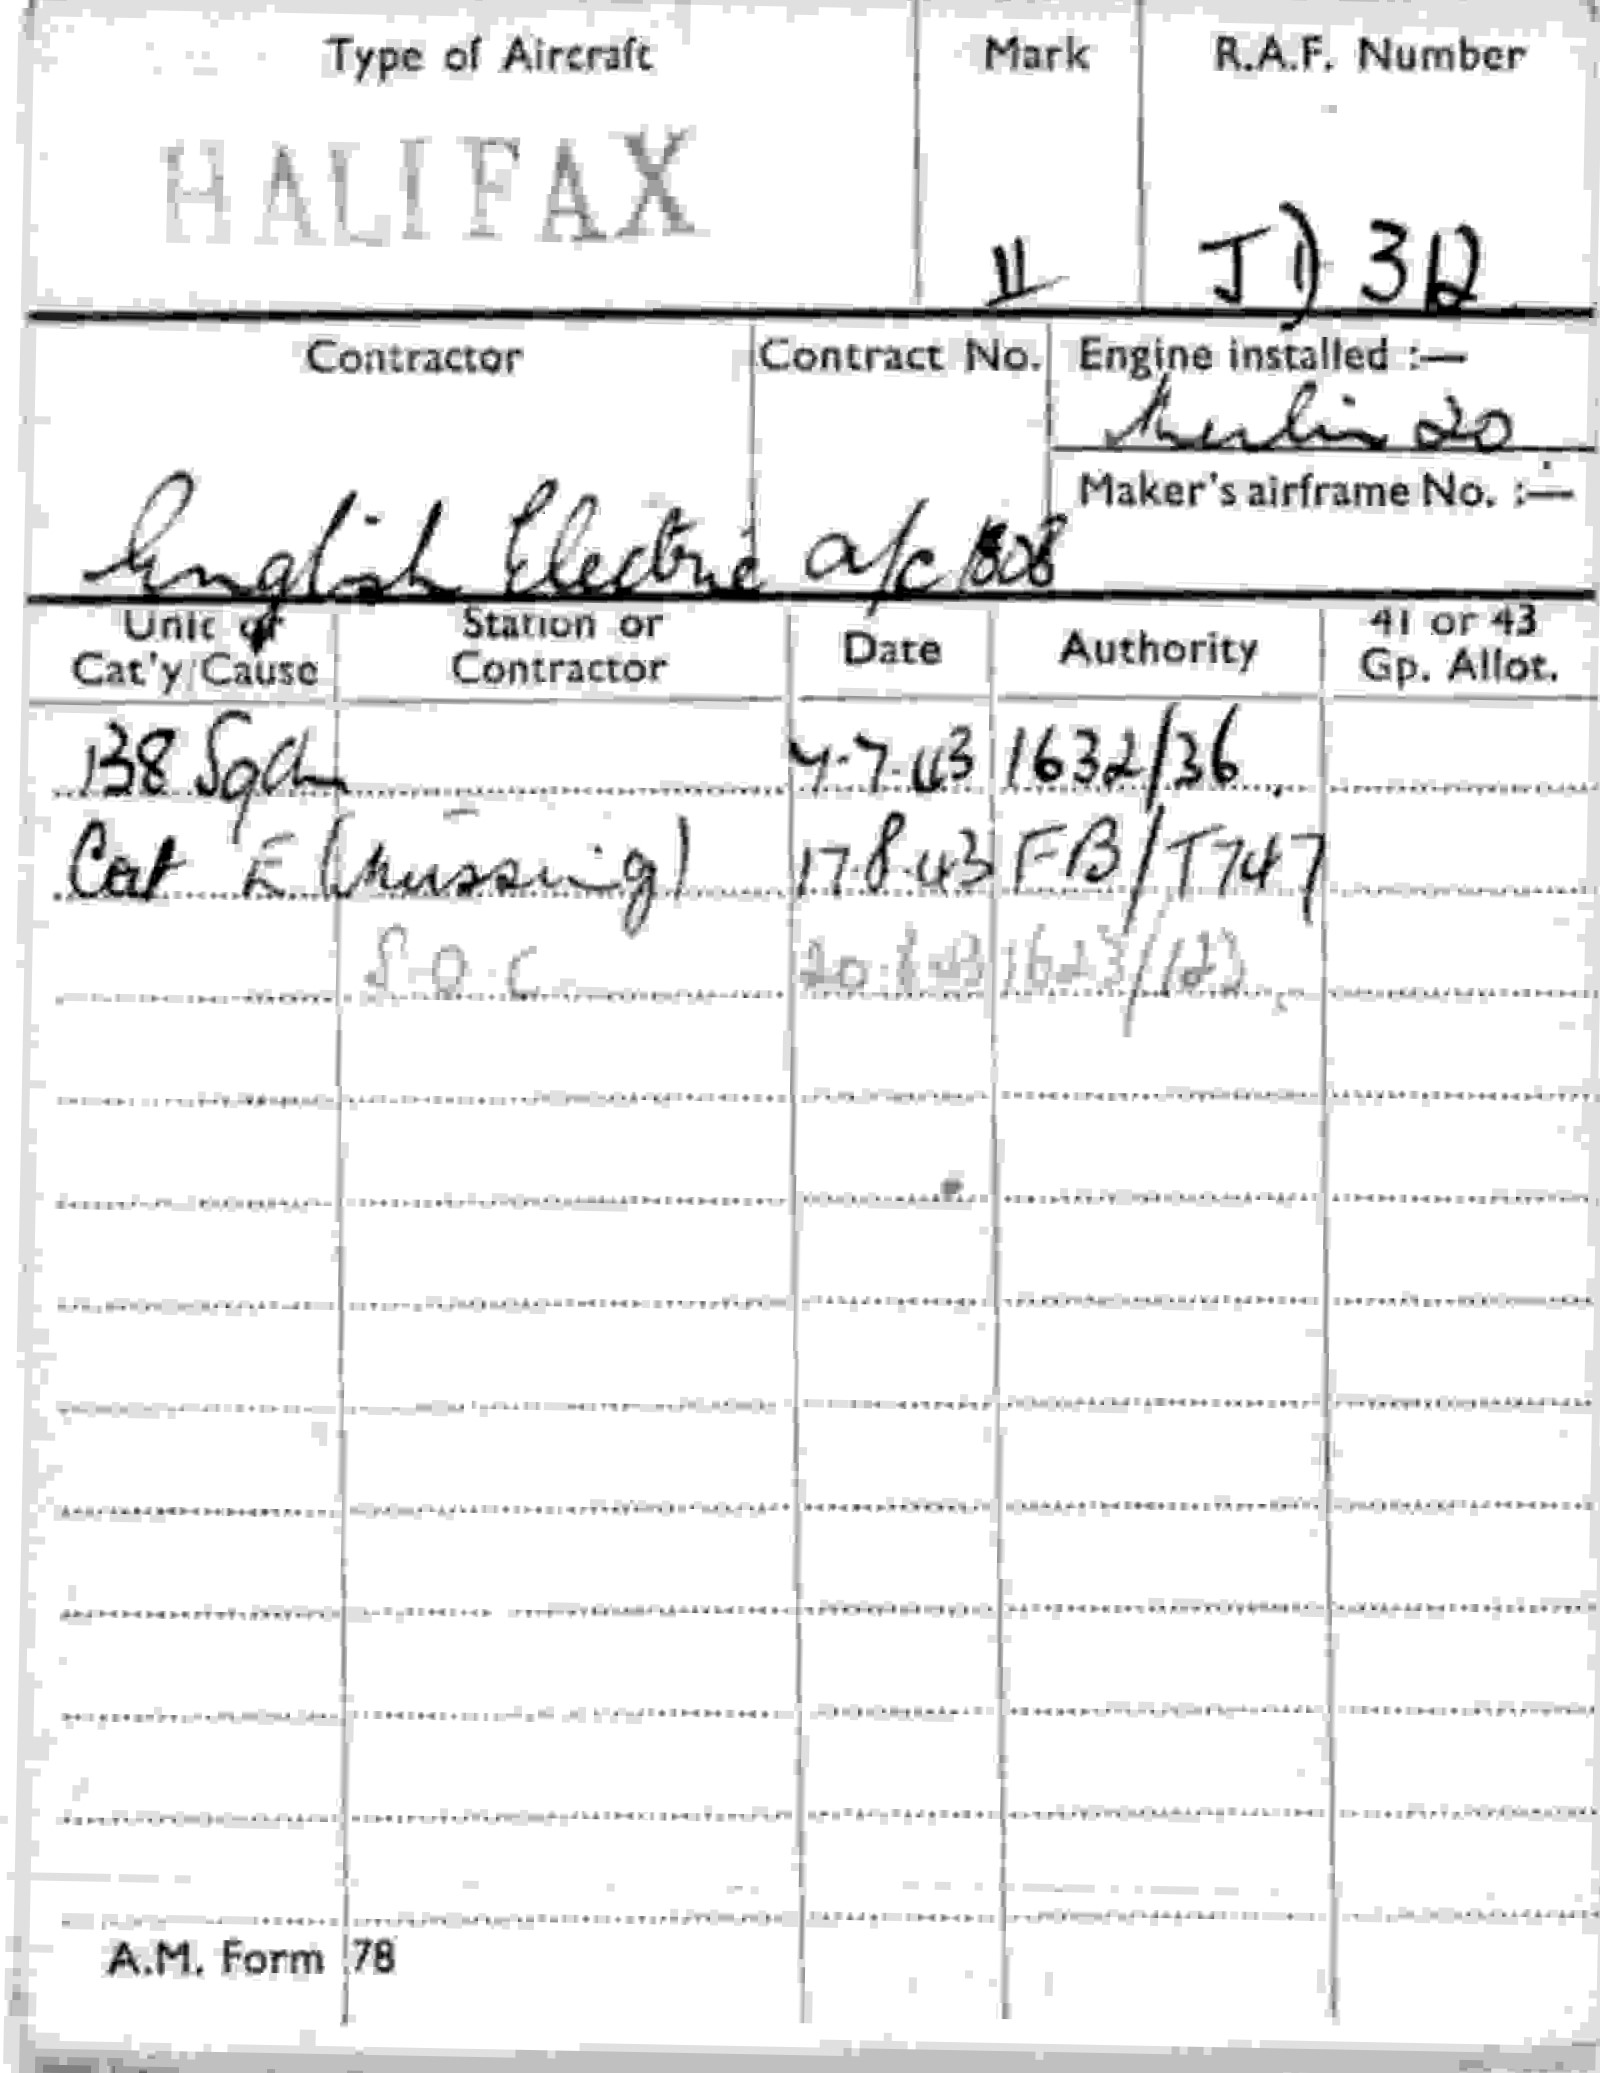 Type of Aircraft Mark R.A.F. Number
HALIFAX II JD 312
Contractor Contract No. Engine installed :—
Merlin 20
Maker's airframe No. :—
English Electric a/c 808
Unit or Cat'y/Cause Station or Contractor Date Authority 41 or 43 Gp. Allot.
138 Sqdn 4.7.43 1632/36
Cat E (missing) 17.8.43 FB/T747
S.O.C 20.8.43 1623/
A.M. Form 78